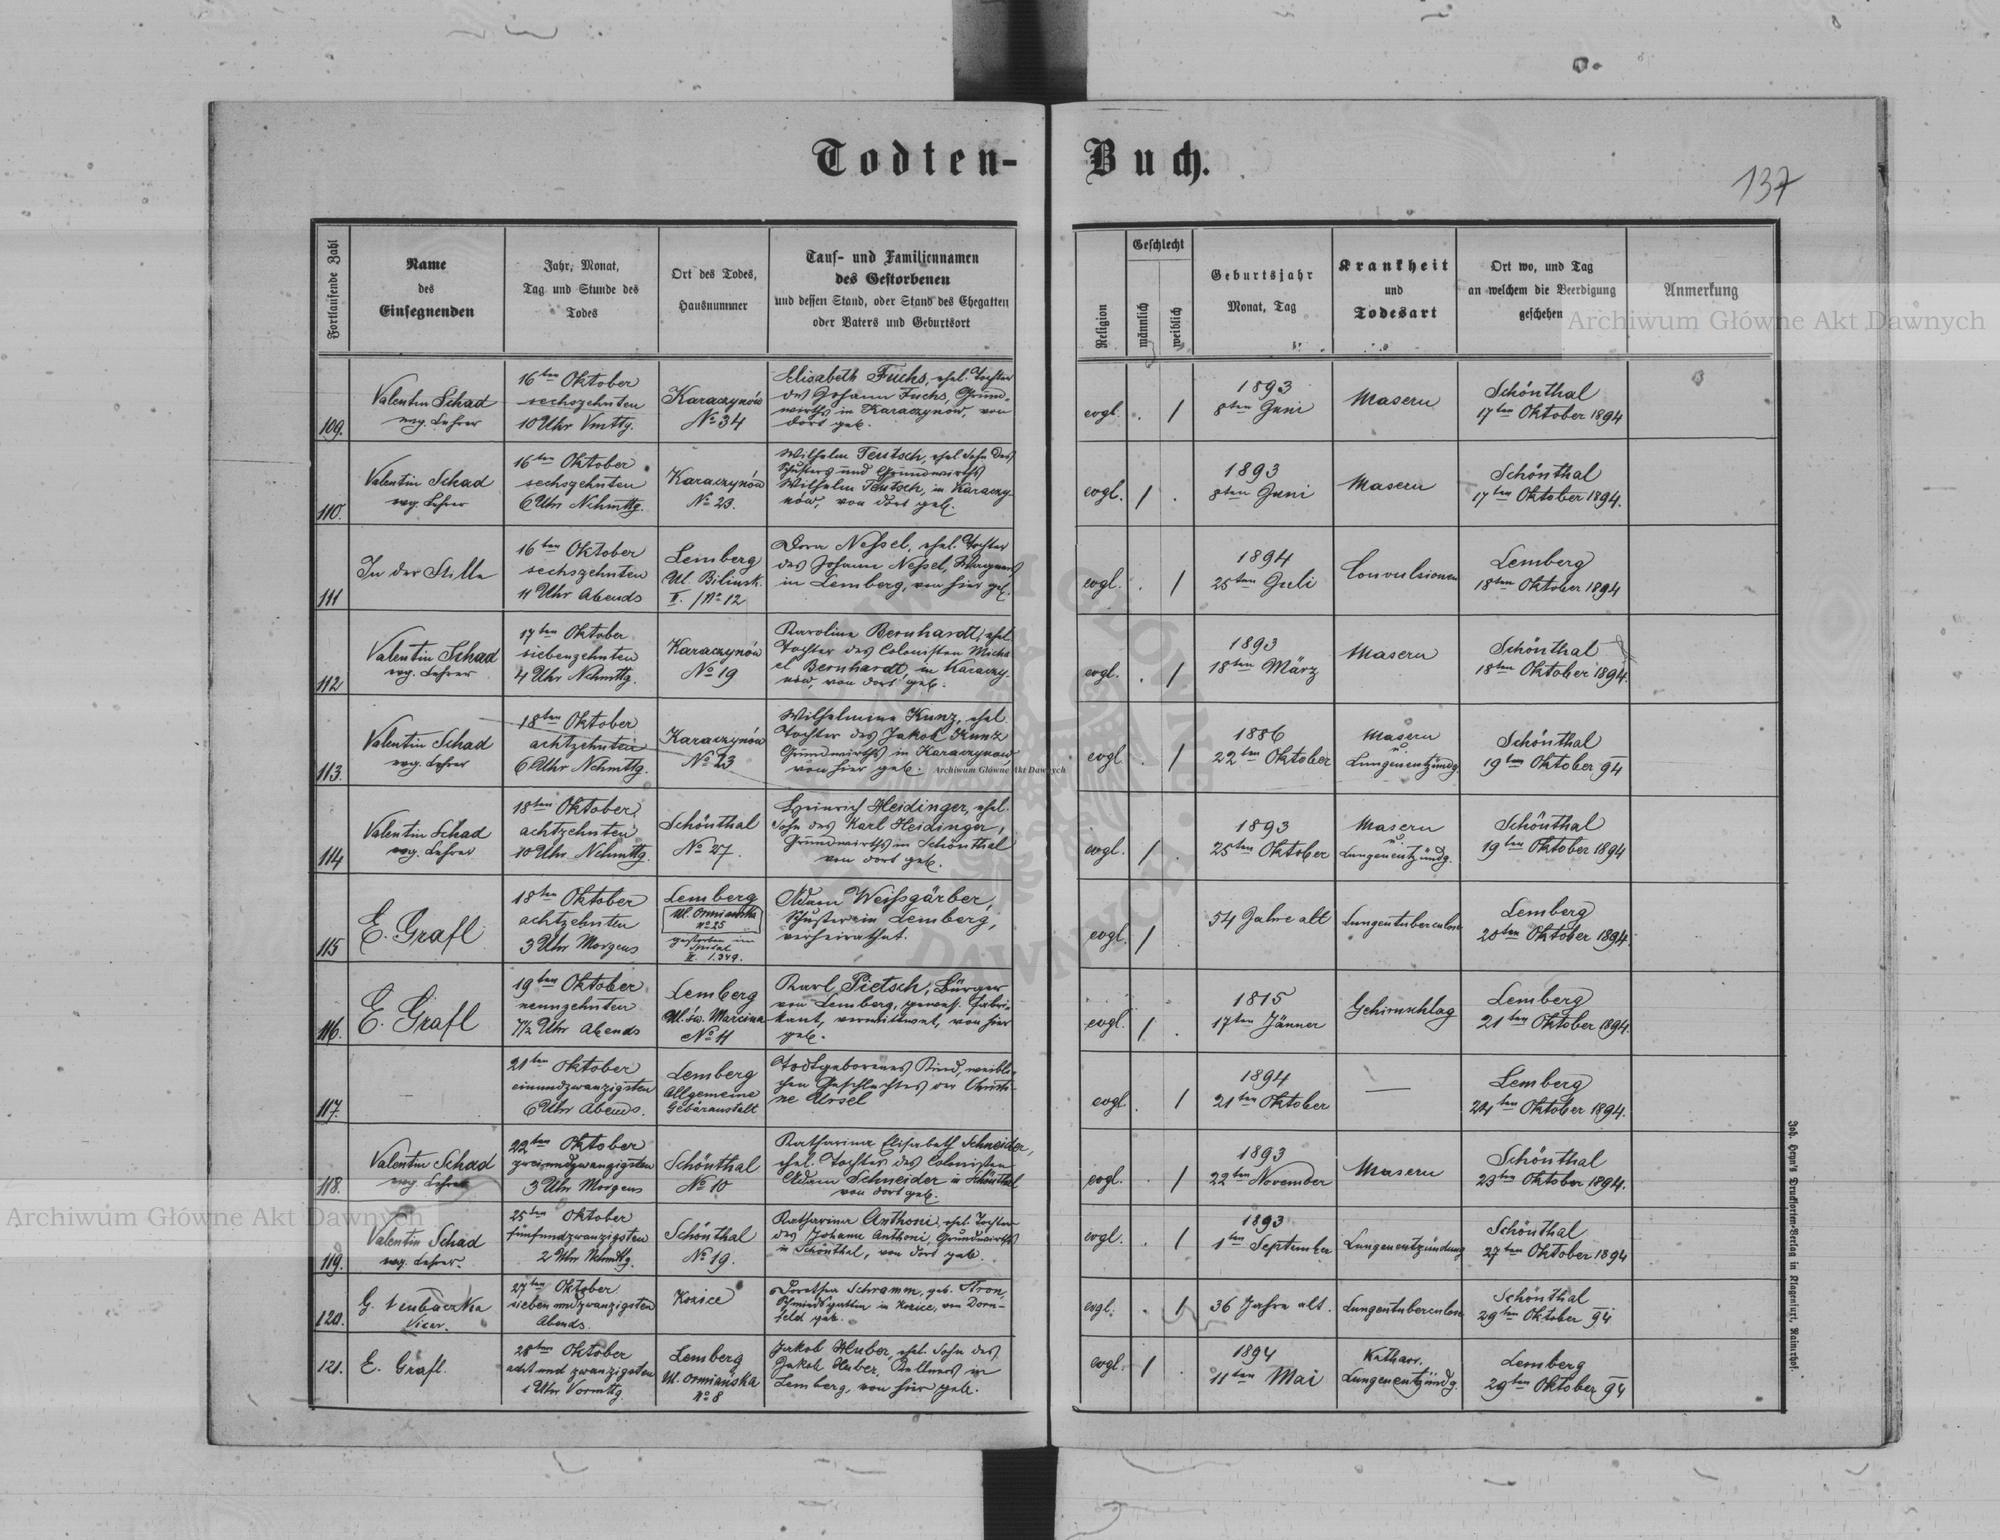 Todten-Buch.
137
Fortlaufende Zahl
Name
des
Einsegnenden
Jahr, Monat,
Tag und Stunde des
Todes
Ort des Todes,
Hausnummer
Tauf- und Familiennamen
des Gestorbenen
und dessen Stand, oder Stand des Ehegatten
oder Vaters und Geburtsort
Religion
Geschlecht
männlich
weiblich
Geburtsjahr
Monat, Tag
Krankheit
und
Todesart
Ort wo, und Tag
an welchem die Beerdigung
geschehen
Anmerkung
Archiwum Główne Akt Dawnych
109.
Valentin Schad
evg. Lehrer
16ten Oktober
sechszehnten
10 Uhr Vmttg.
Karaczynów
No 34
Elisabeth Fuchs, ehel. Tochter
des Johann Fuchs, Grund-
wirths in Karaczynów, von
dort geb.
evgl. . /
1893
8ten Juni
Masern
Schönthal
17ten Oktober 1894
110.
Valentin Schad
evg. Lehrer
16ten Oktober
sechszehnten
6 Uhr Nchmttg.
Karaczynów
No 23.
Wilhelm Teutsch, ehel. Sohn des
Schusters und Grundwirths
Wilhelm Teutsch, in Karaczy-
nów, von dort geb.
evgl. / .
1893
8ten Juni
Masern
Schönthal
17ten Oktober 1894.
111
In der Stille
16ten Oktober
sechszehnten
11 Uhr Abends
Lemberg
Ul. Bilinsk.
II. / No 12
Dora Neßel, ehel. Tochter
des Johann Neßel, Wagners
in Lemberg, von hier geb.
evgl. . /
1894
25ten Juli
Convulsionen
Lemberg
18ten Oktober 1894
112
Valentin Schad
evg. Lehrer
17ten Oktober
siebenzehnten
4 Uhr Nchmttg.
Karaczynów
No 19
Karoline Bernhardt, ehel.
Tochter des Colonisten Micha-
el Bernhardt, in Karaczy-
nów, von dort geb.
evgl. . /
1893
18ten März
Masern
Schönthal
18ten Oktober 1894.
113.
Valentin Schad
evg. Lehrer
18ten Oktober
achtzehnten
6 Uhr Nchmttg.
Karaczynów
No 23
Wilhelmine Kunz, ehel.
Tochter des Jakob Kunz
Grundwirths in Karaczynow,
von hier geb.
Archiwum Główne Akt Dawnych
evgl . /
1886
22ten Oktober
Masern
u.
Lungenentzündg.
Schönthal
19ten Oktober 94
114
Valentin Schad
evg. Lehrer
18ten Oktober
achtzehnten
10 Uhr Nchmttg.
Schönthal
No 27.
Heinrich Heidinger, ehel.
Sohn des Karl Heidinger,
Grundwirths in Schönthal
von dort geb.
evgl. / .
1893
25ten Oktober
Masern
u.
Lungenentzündg.
Schönthal
19ten Oktober 1894
115
E. Grafl
18ten Oktober
achtzehnten
3 Uhr Morgens
Lemberg
Ul. Ormiańska
No 25
gestorben im
Spital
II. 1.349.
Adam Weißgärber,
Schuster in Lemberg,
verheirathet.
evgl. / .
54 Jahre alt
Lungentuberculose
Lemberg
20ten Oktober 1894.
116.
E. Grafl
19ten Oktober
neunzehnten
7 1/2 Uhr Abends
Lemberg
Ul. św. Marcina
No 11
Karl Pietsch, Bürger
von Lemberg, gewes. Fabri-
kant, verwittwet, von hier
geb.
evgl. / .
1815
17ten Jänner
Gehirnschlag
Lemberg
21ten Oktober 1894.
117.
21ten Oktober
einundzwanzigsten
6 Uhr Abends.
Lemberg
Allgemeine
Gebäranstalt
Todtgeborenes Kind, weibli-
chen Geschlechtes der Christi-
ne Ursel
evgl. . /
1894
21ten Oktober
—
Lemberg
24ten Oktober 1894.
118.
Valentin Schad
evg. Lehrer
22ten Oktober
zweiundzwanzigsten
3 Uhr Morgens
Schönthal
No 10
Katharina Elisabeth Schneider,
ehel. Tochter des Colonisten
Adam Schneider in Schönthal
von dort geb.
evgl. . /
1893
22ten November
Masern
Schönthal
23ten Oktober 1894.
Archiwum Główne Akt Dawnych
119.
Valentin Schad
evg. Lehrer.
25ten Oktober
fünfundzwanzigsten
2 Uhr Nchmttg.
Schönthal
No 19.
Katharina Anthoni, ehel. Tochter
des Johann Anthoni, Grundwirths
in Schönthal, von dort geb.
evgl. . /
1893
1ten September
Lungenentzündung
Schönthal
27ten Oktober 1894
120.
G.
Vicar.
27ten Oktober
siebenundzwanzigsten
Abends.
Kozice
Dorothea Schramm, geb.
Schmiedsgattin in Kozice, von Dorn-
feld geb.
evgl. . /
36 Jahre alt.
Lungentuberculose
Schönthal
29ten Oktober 94
121.
E. Grafl.
28ten Oktober
achtundzwanzigsten
1 Uhr Vormttg.
Lemberg
Ul. Ormiańska
No 8
Jakob Huber, ehel. Sohn des
Jakob Huber, Kellners in
Lemberg, von hier geb.
evgl. / .
1894
11ten Mai
Katharr.
Lungenentzündg.
Lemberg
29ten Oktober 94
Joh. Heyn's Drucksorten-Verlag in Klagenfurt, Rainerhof.